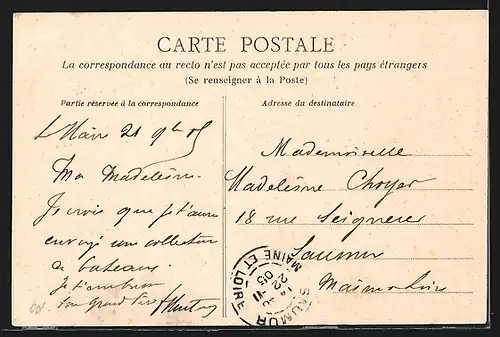 CARTE POSTALE
La correspondance au recto n'est pas acceptée par tous les pays étrangers
(Se renseigner à la Poste)
Partie réservée à la correspondance
Adresse du destinataire
21 9bre 05
Ma Madeleine
Je crois que je t'aurai
envoyé une collection
de bateaux.
Je t'embrasse
ton grand Père
Mademoiselle
Madeleine Choyer
18 rue Seigneur
Saumur
Maine et Loire
SAUMUR
MAINE ET LOIRE
22 -11
05